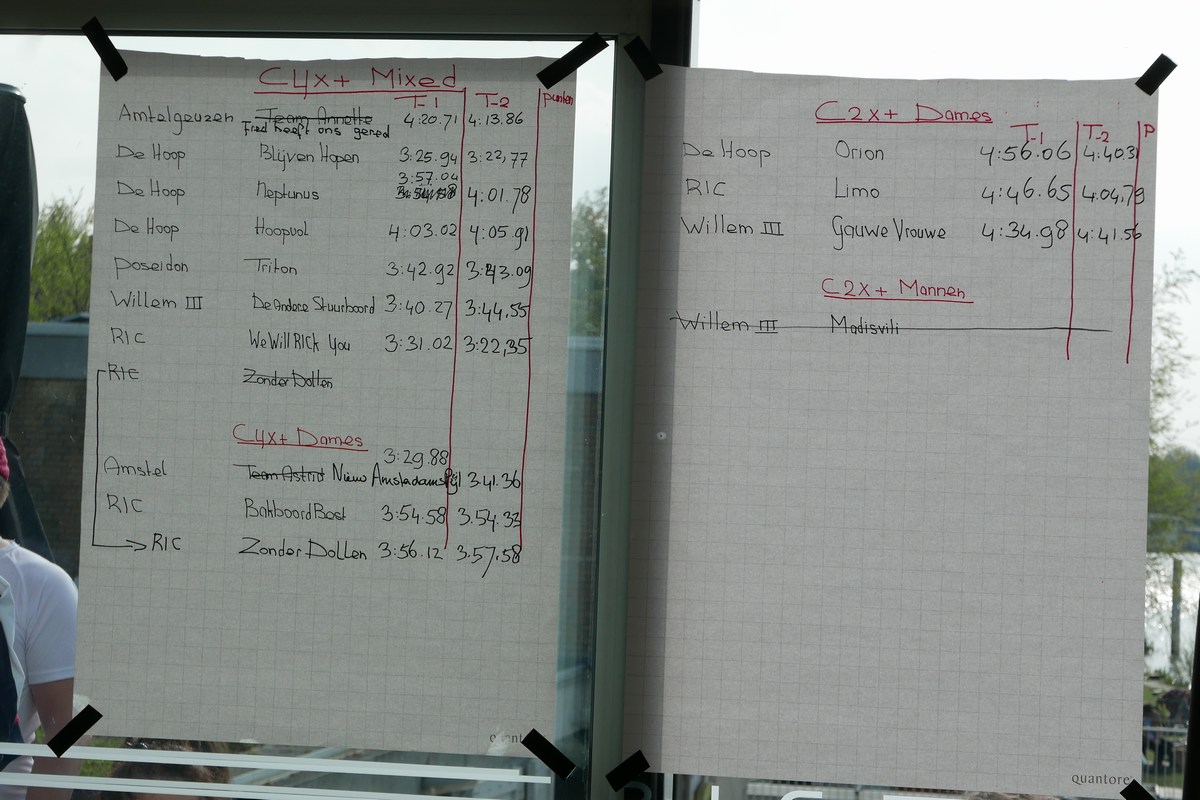 C4x+ Mixed
T-1 T-2 punten
Amstelgeuzen Team Annette 4:20.71 4:13.86
Fred heeft ons gered
De Hoop Blijven Hopen 3:25.94 3:22,77
3:57.04
De Hoop Neptunus 4:01.78
De Hoop Hoopvol 4:03.02 4:05.91
Poseidon Triton 3:42.92 3:43.09
Willem III De Andere Stuurboord 3:40.27 3:44,55
RIC We Will RICk You 3:31.02 3:22,35
RIC Zonder Dollen
C4x+ Dames
3:29.88
Amstel Team Astrid Nieuw Amsterdams 3.41.36
RIC BakboordBast 3:54.58 3.54.33
RIC Zonder Dollen 3:56.12 3.57.58
quant
C2x+ Dames
T-1 T-2 P
De Hoop Orion 4:56.06 4:40.31
RIC Limo 4:46.65 4:04.79
Willem III Gauwe Vrouwe 4:34.98 4:41.56
C2x+ Mannen
Willem III Madisvili
quantore